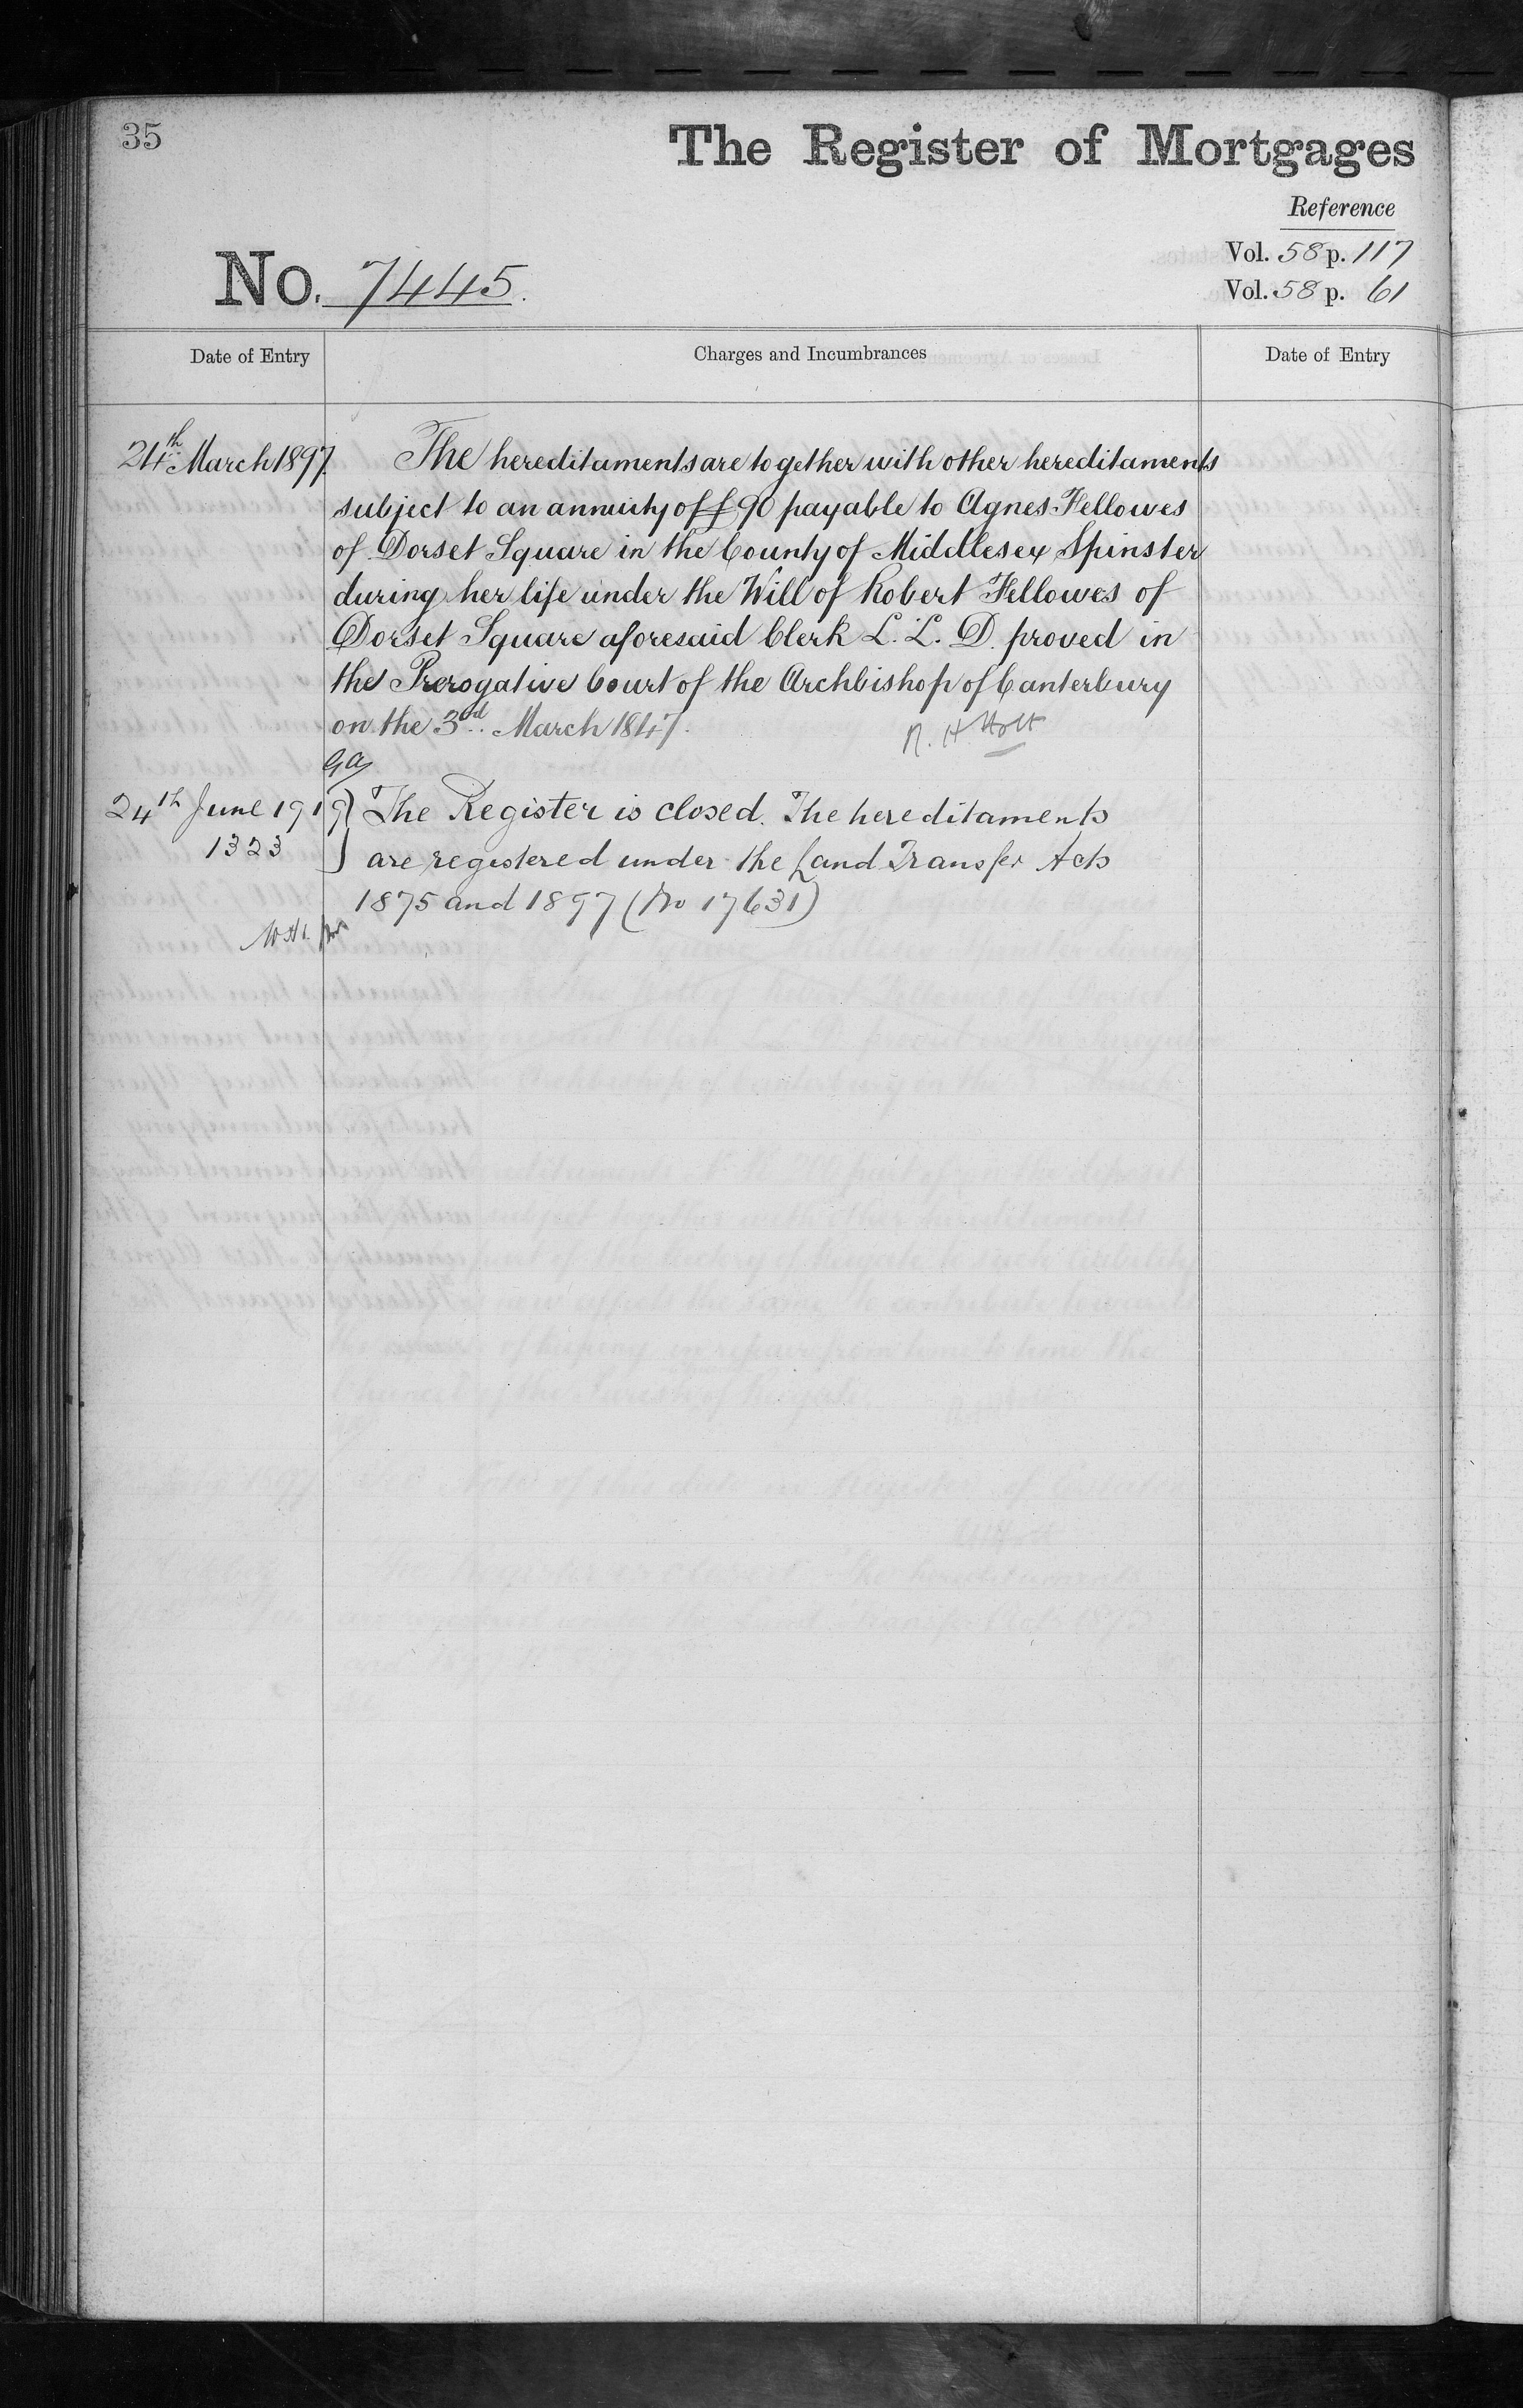 35
The Register of Mortgages
Reference
Vol. 58 p. 117
No. 7445.
Vol. 58 p. 61
Date of Entry
Charges and Incumbrances
Date of Entry
24th March 1897.
The hereditaments are together with other hereditaments
subject to an annuity of £90 payable to Agnes Fellowes
of Dorset Square in the County of Middlesex Spinster
during her life under the Will of Robert Fellowes of
Dorset Square aforesaid Clerk L. L. D. proved in
the Prerogative Court of the Archbishop of Canterbury
on the 3rd. March 1847.
R. H. Holt
24th June 1919
The Register is closed. The hereditaments
1323
are registered under the Land Transfer Acts
1875 and 1897 (No 17631)